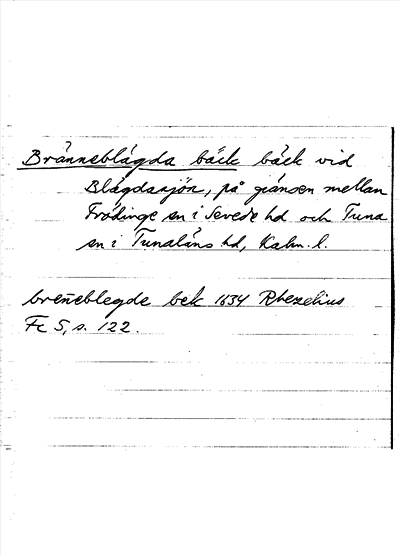 Bränneblågda bäck bäck vid
Blågdasjön, på gränsen mellan
Frödinge sn i Sevede hd och Tuna
sn i Tunaläns hd, Kalm. l.
breñeblegde bek 1634 Rhezelius
Fc 5, s. 122.